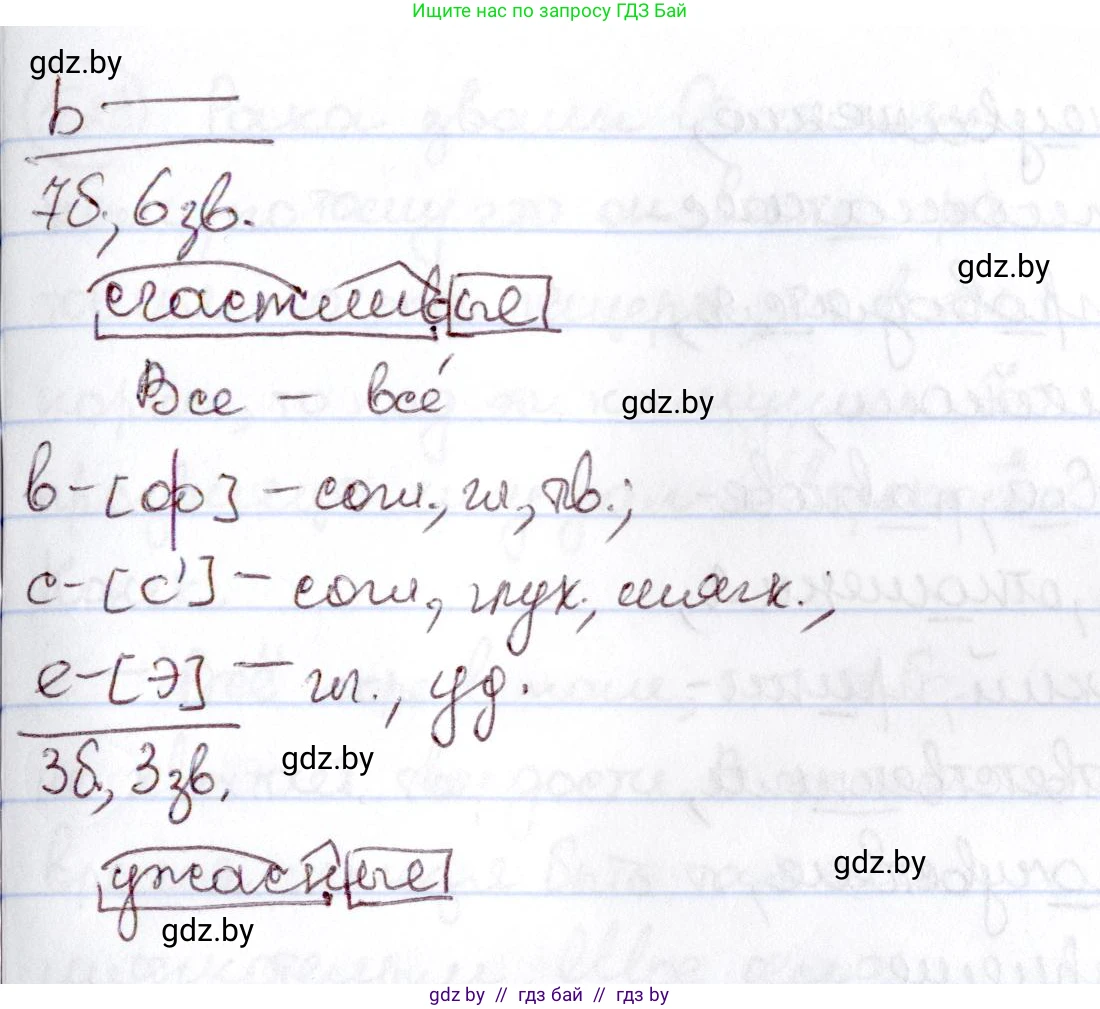 Ищите нас по запросу ГДЗ Бай
gdz.by
ь —
7б, 6зв.
gdz.by
счастливые
Все – все́
gdz.by
в-[ф] – согл., гл., тв.;
с-[с'] – согл., глух., мягк.;
е-[э] – гл., уд.
gdz.by
3б, 3зв.
ужасные
gdz.by
gdz.by
gdz.by // гдз бай // гдз by